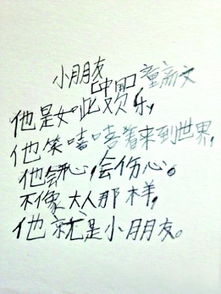 小朋友
他是如此欢乐,
他笑嘻嘻着来到世界,
他会开心会伤心。
不像大人那样,
他就是小朋友。